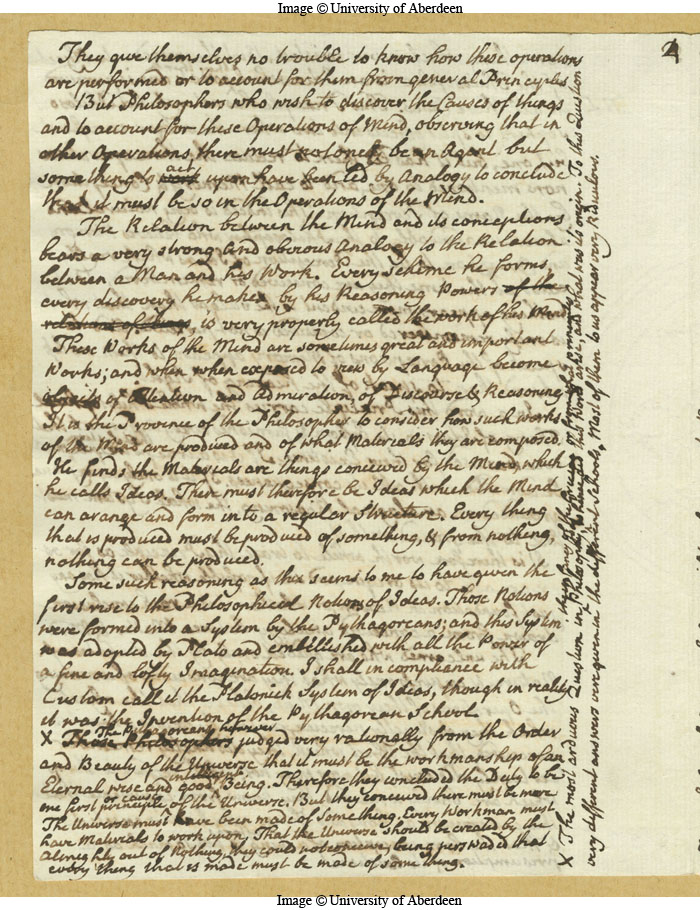 Image © University of Aberdeen
2
They give themselves no trouble to know how these operations
are performed or to account for them from general Principles
But Philosophers who wish to discover the Causes of things
and to account for these Operations of Mind, observing that in
other Operations, there must not onely be an Agent but
something to work act upon have been led by Analogy to conclude
that it must be so in the Operations of the Mind.
The Relation between the Mind and its conceptions
bears a very strong and obvious Analogy to the Relation
between a Man and his Work. Every scheme he forms,
every discovery he makes by his Reasoning Powers of the
relations of things, is very properly called the work of his Mind
These Works of the Mind are sometimes great and important
Works; and when when exposed to view by Language become
objects of Attention and Admiration, of Discourse & Reasoning
It is the Province of the Philosopher to consider how such works
of the Mind are produced and of what Materials they are composed.
He finds the Materials are things conceived by the Mind, which
he calls Ideas. There must therefore be Ideas which the Mind
can arange and form into a regular Structure. Every thing
that is produced must be produced of something, & from nothing,
nothing can be produced.
Some such reasoning as this seems to me to have given the
first rise to the Philosophical Notions of Ideas. Those Notions
were formed into a System by the Pythagoreans; and this System
was adopted by Plato and embellished with all the Power of
a fine and lofty Imagination. I shall in compliance with
Custom call it the Platonick System of Ideas, though in reality
it was the Invention of the Pythagorean School
The Pythagoreans however
X Those Philosophers judged very rationally from the Order
and Beauty of the Universe that it must be the workmanship of an
Eternal wise and good intelligent Being. Therefore they concluded the Deity to be
one first principle or cause of the Universe. But they conceived there must be more
The Universe must have been made of Something. Every Workman must
have Materials to work upon, That the Universe should be created by the
Almighty out of Nothing, they could not conceive, being perswaded that
every thing that is made must be made of something.
X The most arduous Question in Philosophy is how this World arose, and what was its origin. To this Question
very different answers were given in the different Schools, Most of them to us appear very Ridiculous.
Image © University of Aberdeen